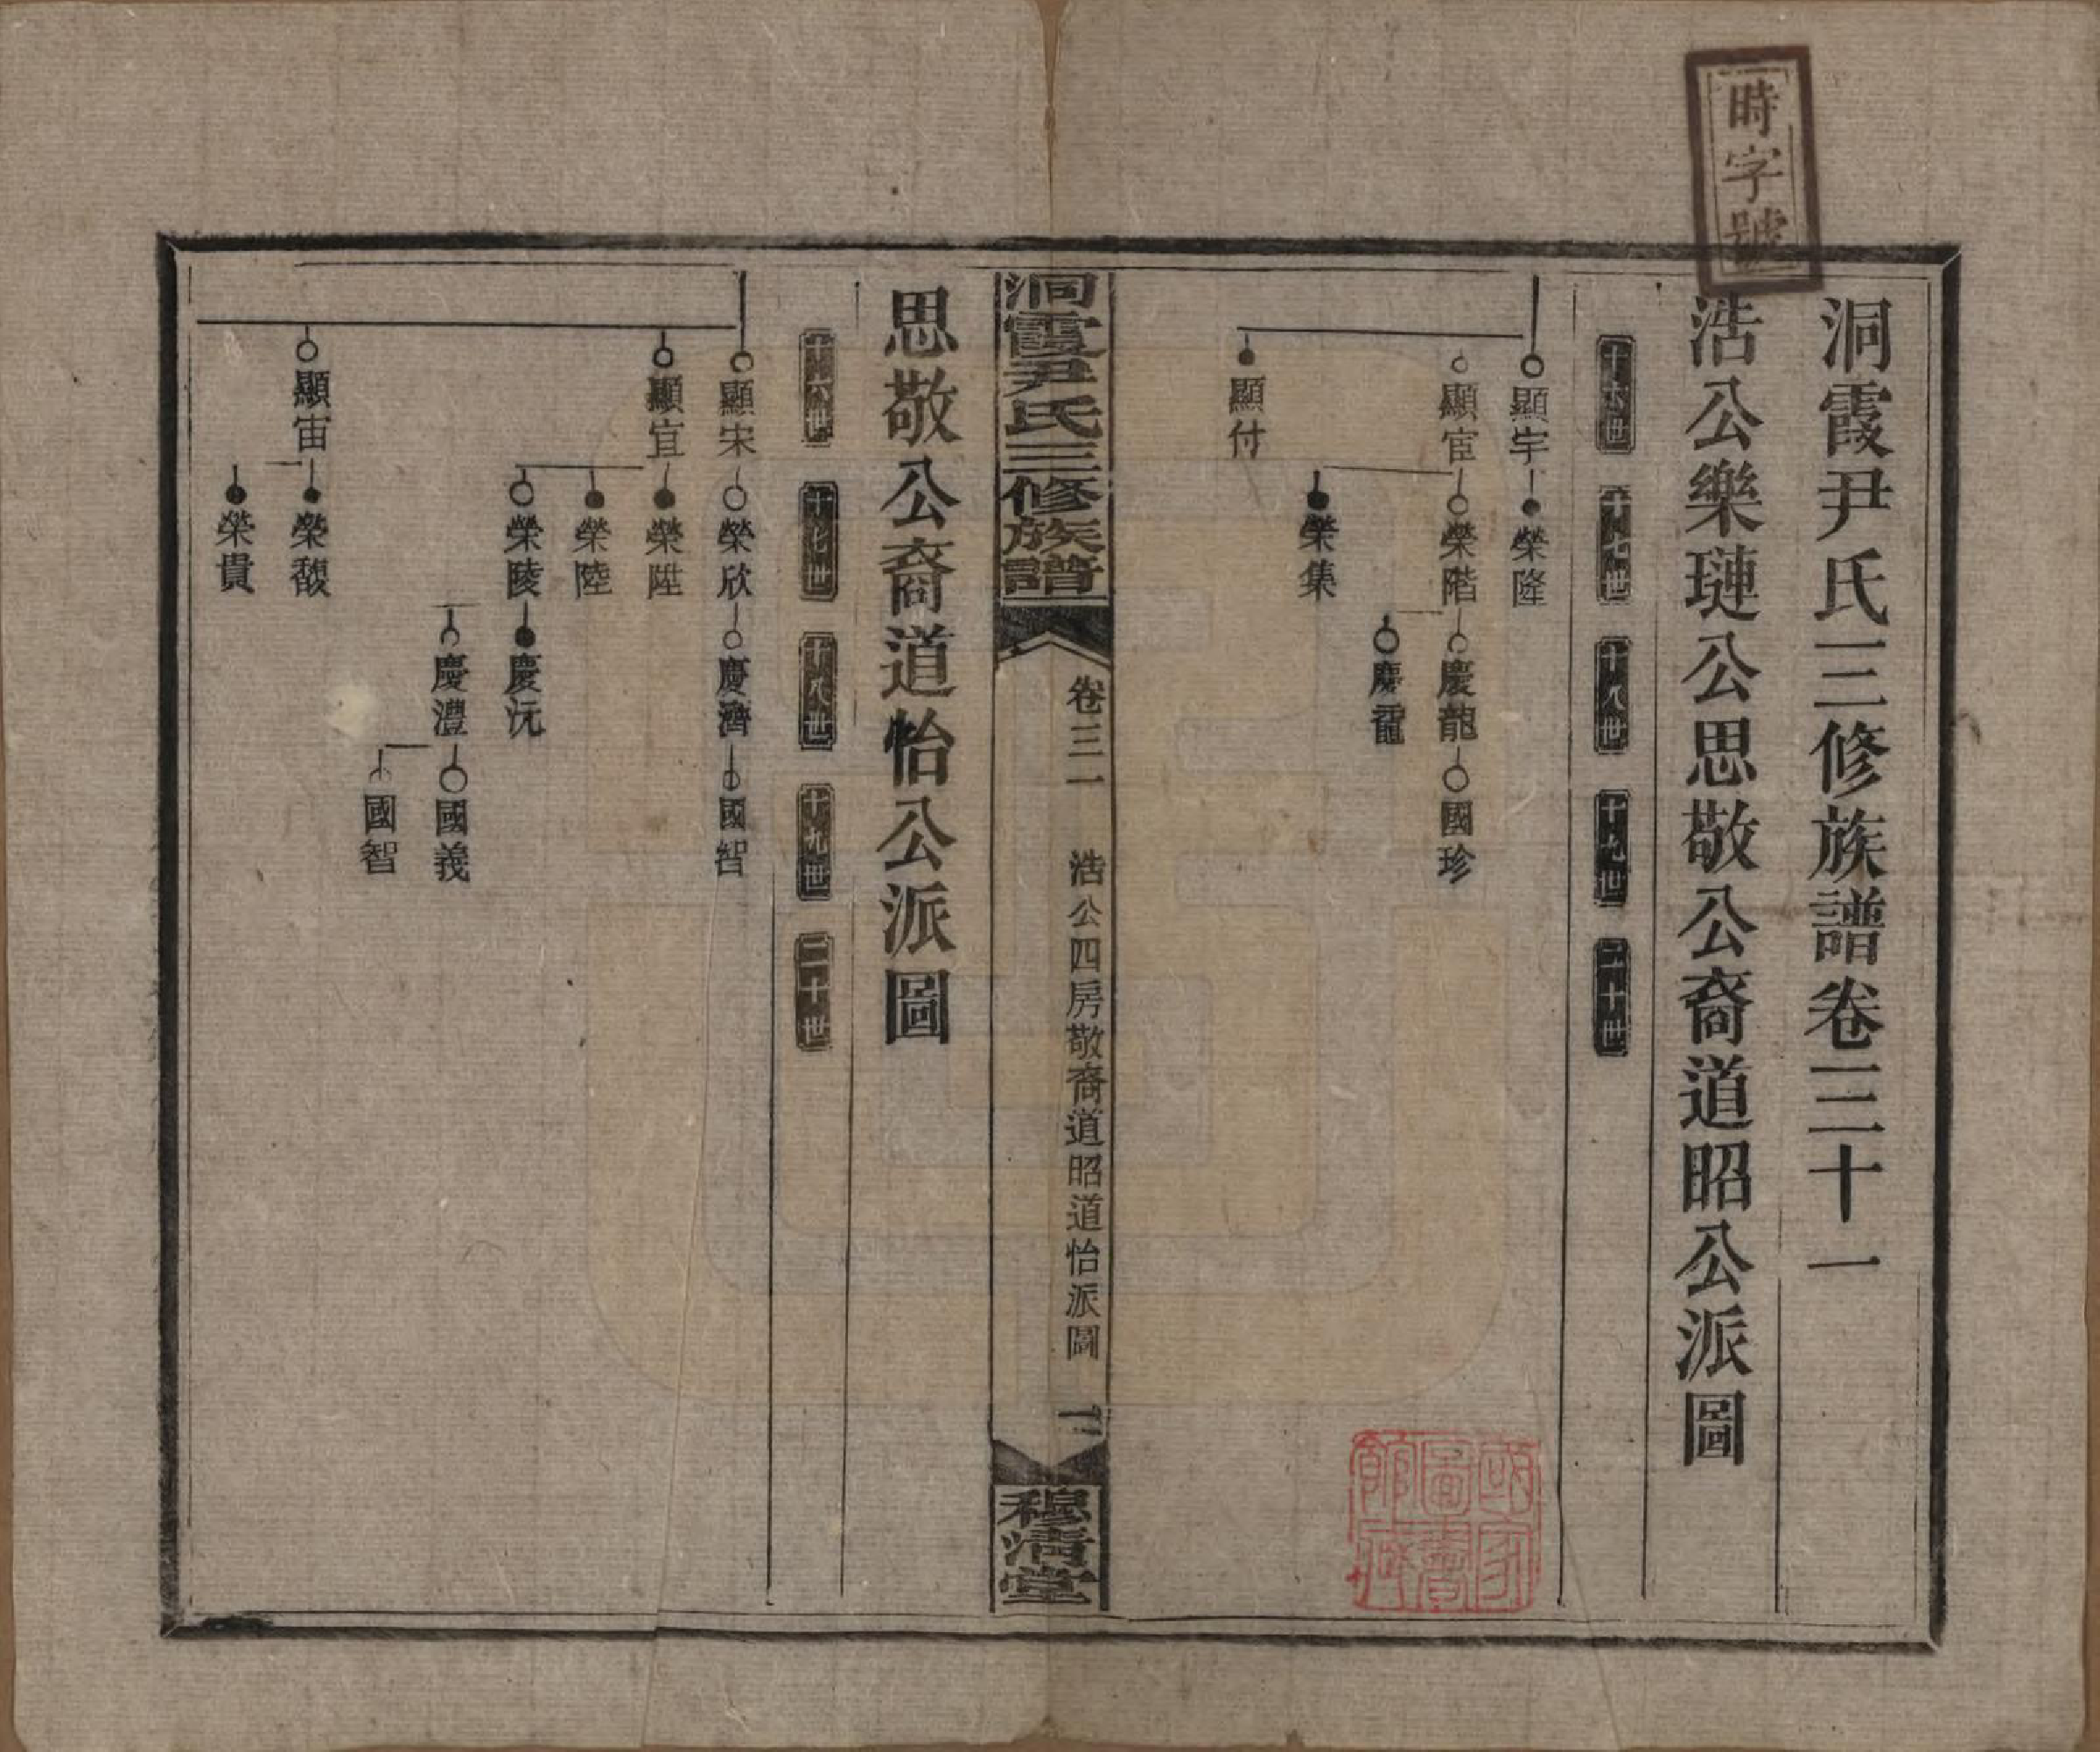 時字號
洞霞尹氏三修族譜卷三十一
浩公樂璉公思敬公裔道昭公派圖
十六世 十七世 十八世 十九世 二十世
顯宇 榮隆
顯宦 榮階 慶龍 國珍
慶靇
榮集
顯付
國家圖書館藏
洞霞尹氏三修族譜 卷三一 浩公四房敬裔道昭道怡派圖 一 穆清堂
思敬公裔道怡公派圖
十六世 十七世 十八世 十九世 二十世
顯宋 榮欣 慶濟 國智
顯宜 榮陞
榮陸
榮陵 慶沅
慶澧 國義
國智
顯宙 榮馥
榮貴